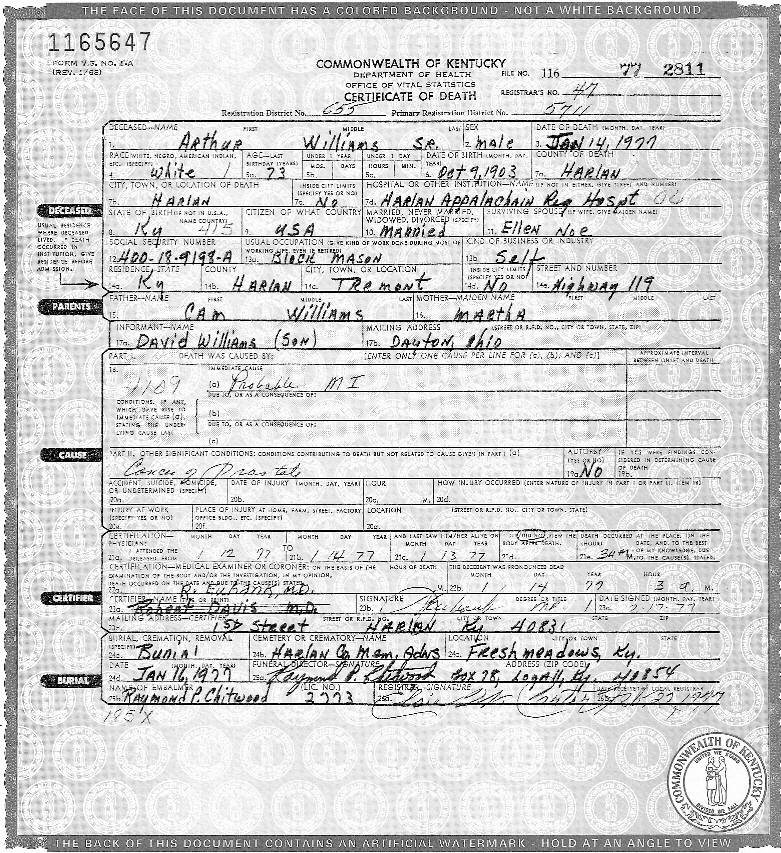 THE FACE OF THIS DOCUMENT HAS A COLORED BACKGROUND - NOT A WHITE BACKGROUND
1165647
FORM V.S. NO. 1-A
(REV. 1/68)
COMMONWEALTH OF KENTUCKY
DEPARTMENT OF HEALTH
OFFICE OF VITAL STATISTICS
CERTIFICATE OF DEATH
FILE NO. 116 77 2811
REGISTRAR'S NO. 47
Registration District No. 655 Primary Registration District No. 5711
DECEASED—NAME FIRST MIDDLE LAST SEX DATE OF DEATH (MONTH, DAY, YEAR)
1. Arthur Williams Sr. 2. male 3. JAN 14, 1977
RACE WHITE, NEGRO, AMERICAN INDIAN, ETC. (SPECIFY) AGE—LAST BIRTHDAY (YEARS) UNDER 1 YEAR MOS. DAYS UNDER 1 DAY HOURS MIN. DATE OF BIRTH (MONTH, DAY, YEAR) COUNTY OF DEATH
4. White 5a. 73 5b. 5c. 6. Oct 9, 1903 7a. HARLAN
CITY, TOWN, OR LOCATION OF DEATH INSIDE CITY LIMITS (SPECIFY YES OR NO) HOSPITAL OR OTHER INSTITUTION—NAME (IF NOT IN EITHER, GIVE STREET AND NUMBER)
7b. HARLAN 7c. No 7d. HARLAN APPALACHAIN Reg Hospt
DECEASED
USUAL RESIDENCE WHERE DECEASED LIVED. IF DEATH OCCURRED IN INSTITUTION, GIVE RESIDENCE BEFORE ADMISSION.
STATE OF BIRTH (IF NOT IN U.S.A., NAME COUNTRY) CITIZEN OF WHAT COUNTRY MARRIED, NEVER MARRIED, WIDOWED, DIVORCED (SPECIFY) SURVIVING SPOUSE (IF WIFE, GIVE MAIDEN NAME)
8. Ky 415 9. USA 10. MARRIED 11. Ellen Noe
SOCIAL SECURITY NUMBER USUAL OCCUPATION (GIVE KIND OF WORK DONE DURING MOST OF WORKING LIFE, EVEN IF RETIRED) KIND OF BUSINESS OR INDUSTRY
12. 400-18-9198-A 13a. Block MASON 13b. Self
RESIDENCE STATE COUNTY CITY, TOWN, OR LOCATION INSIDE CITY LIMITS (SPECIFY YES OR NO) STREET AND NUMBER
14a. Ky 14b. HARLAN 14c. TRemont 14d. No 14e. Highway 119
PARENTS
FATHER—NAME FIRST MIDDLE LAST MOTHER—MAIDEN NAME FIRST MIDDLE LAST
15. CAM Williams 16. MARTHA
INFORMANT—NAME MAILING ADDRESS (STREET OR R.F.D. NO., CITY OR TOWN, STATE, ZIP)
17a. DAVID WILLIAMS (SON) 17b. DAYTON, Ohio
PART I. DEATH WAS CAUSED BY: [ENTER ONLY ONE CAUSE PER LINE FOR (a), (b), AND (c)] APPROXIMATE INTERVAL BETWEEN ONSET AND DEATH
18. IMMEDIATE CAUSE
(a) Probable MI
DUE TO, OR AS A CONSEQUENCE OF:
CONDITIONS, IF ANY, WHICH GAVE RISE TO IMMEDIATE CAUSE (a), STATING THE UNDERLYING CAUSE LAST
(b)
DUE TO, OR AS A CONSEQUENCE OF:
(c)
CAUSE
PART II. OTHER SIGNIFICANT CONDITIONS: CONDITIONS CONTRIBUTING TO DEATH BUT NOT RELATED TO CAUSE GIVEN IN PART I (a) AUTOPSY (YES OR NO) IF YES WERE FINDINGS CONSIDERED IN DETERMINING CAUSE OF DEATH
Cancer of Prostate 19a. No 19b.
ACCIDENT, SUICIDE, HOMICIDE, OR UNDETERMINED (SPECIFY) DATE OF INJURY (MONTH, DAY, YEAR) HOUR HOW INJURY OCCURRED (ENTER NATURE OF INJURY IN PART I OR PART II, ITEM 18)
20a. 20b. 20c. M. 20d.
INJURY AT WORK (SPECIFY YES OR NO) PLACE OF INJURY AT HOME, FARM, STREET, FACTORY, OFFICE BLDG., ETC. (SPECIFY) LOCATION (STREET OR R.F.D. NO., CITY OR TOWN, STATE)
20e. 20f. 20g.
CERTIFICATION—PHYSICIAN MONTH DAY YEAR MONTH DAY YEAR AND LAST SAW HIM/HER ALIVE ON MONTH DAY YEAR
21a. I ATTENDED THE DECEASED FROM 1 12 77 TO 21b. 1 14 77 21c. 1 13 77 21d. 21e.
CERTIFICATION—MEDICAL EXAMINER OR CORONER: ON THE BASIS OF THE EXAMINATION OF THE BODY AND/OR THE INVESTIGATION, IN MY OPINION, DEATH OCCURRED ON THE DATE AND DUE TO THE CAUSE(S) STATED HOUR OF DEATH THE DECEDENT WAS PRONOUNCED DEAD MONTH DAY YEAR HOUR
22a. M. 22b. 1 14 77 M.
CERTIFIER
CERTIFIER—NAME (TYPE OR PRINT) SIGNATURE DEGREE OR TITLE DATE SIGNED (MONTH, DAY, YEAR)
23a. Robert Davis M.D. 23b. 23c.
MAILING ADDRESS—CERTIFIER STREET OR R.F.D. NO. CITY OR TOWN STATE ZIP
23d. 1st Street HARLAN Ky 40831
BURIAL, CREMATION, REMOVAL (SPECIFY) CEMETERY OR CREMATORY—NAME LOCATION CITY OR TOWN STATE
24a. Burial 24b. HARLAN Co. Mem. Gdns 24c. FRESH meadows, Ky.
BURIAL
DATE (MONTH, DAY, YEAR) FUNERAL DIRECTOR—SIGNATURE ADDRESS (ZIP CODE)
24d. JAN 16, 1977 25a. Raymond P. Chitwood Box 78, Loyall, Ky. 40854
NAME OF EMBALMER (LIC. NO.) REGISTRAR—SIGNATURE DATE RECEIVED BY LOCAL REGISTRAR
25b. RAYMOND P. Chitwood 2773 26a.
COMMONWEALTH OF KENTUCKY
UNITED WE STAND
DIVIDED WE FALL
THE BACK OF THIS DOCUMENT CONTAINS AN ARTIFICIAL WATERMARK - HOLD AT AN ANGLE TO VIEW